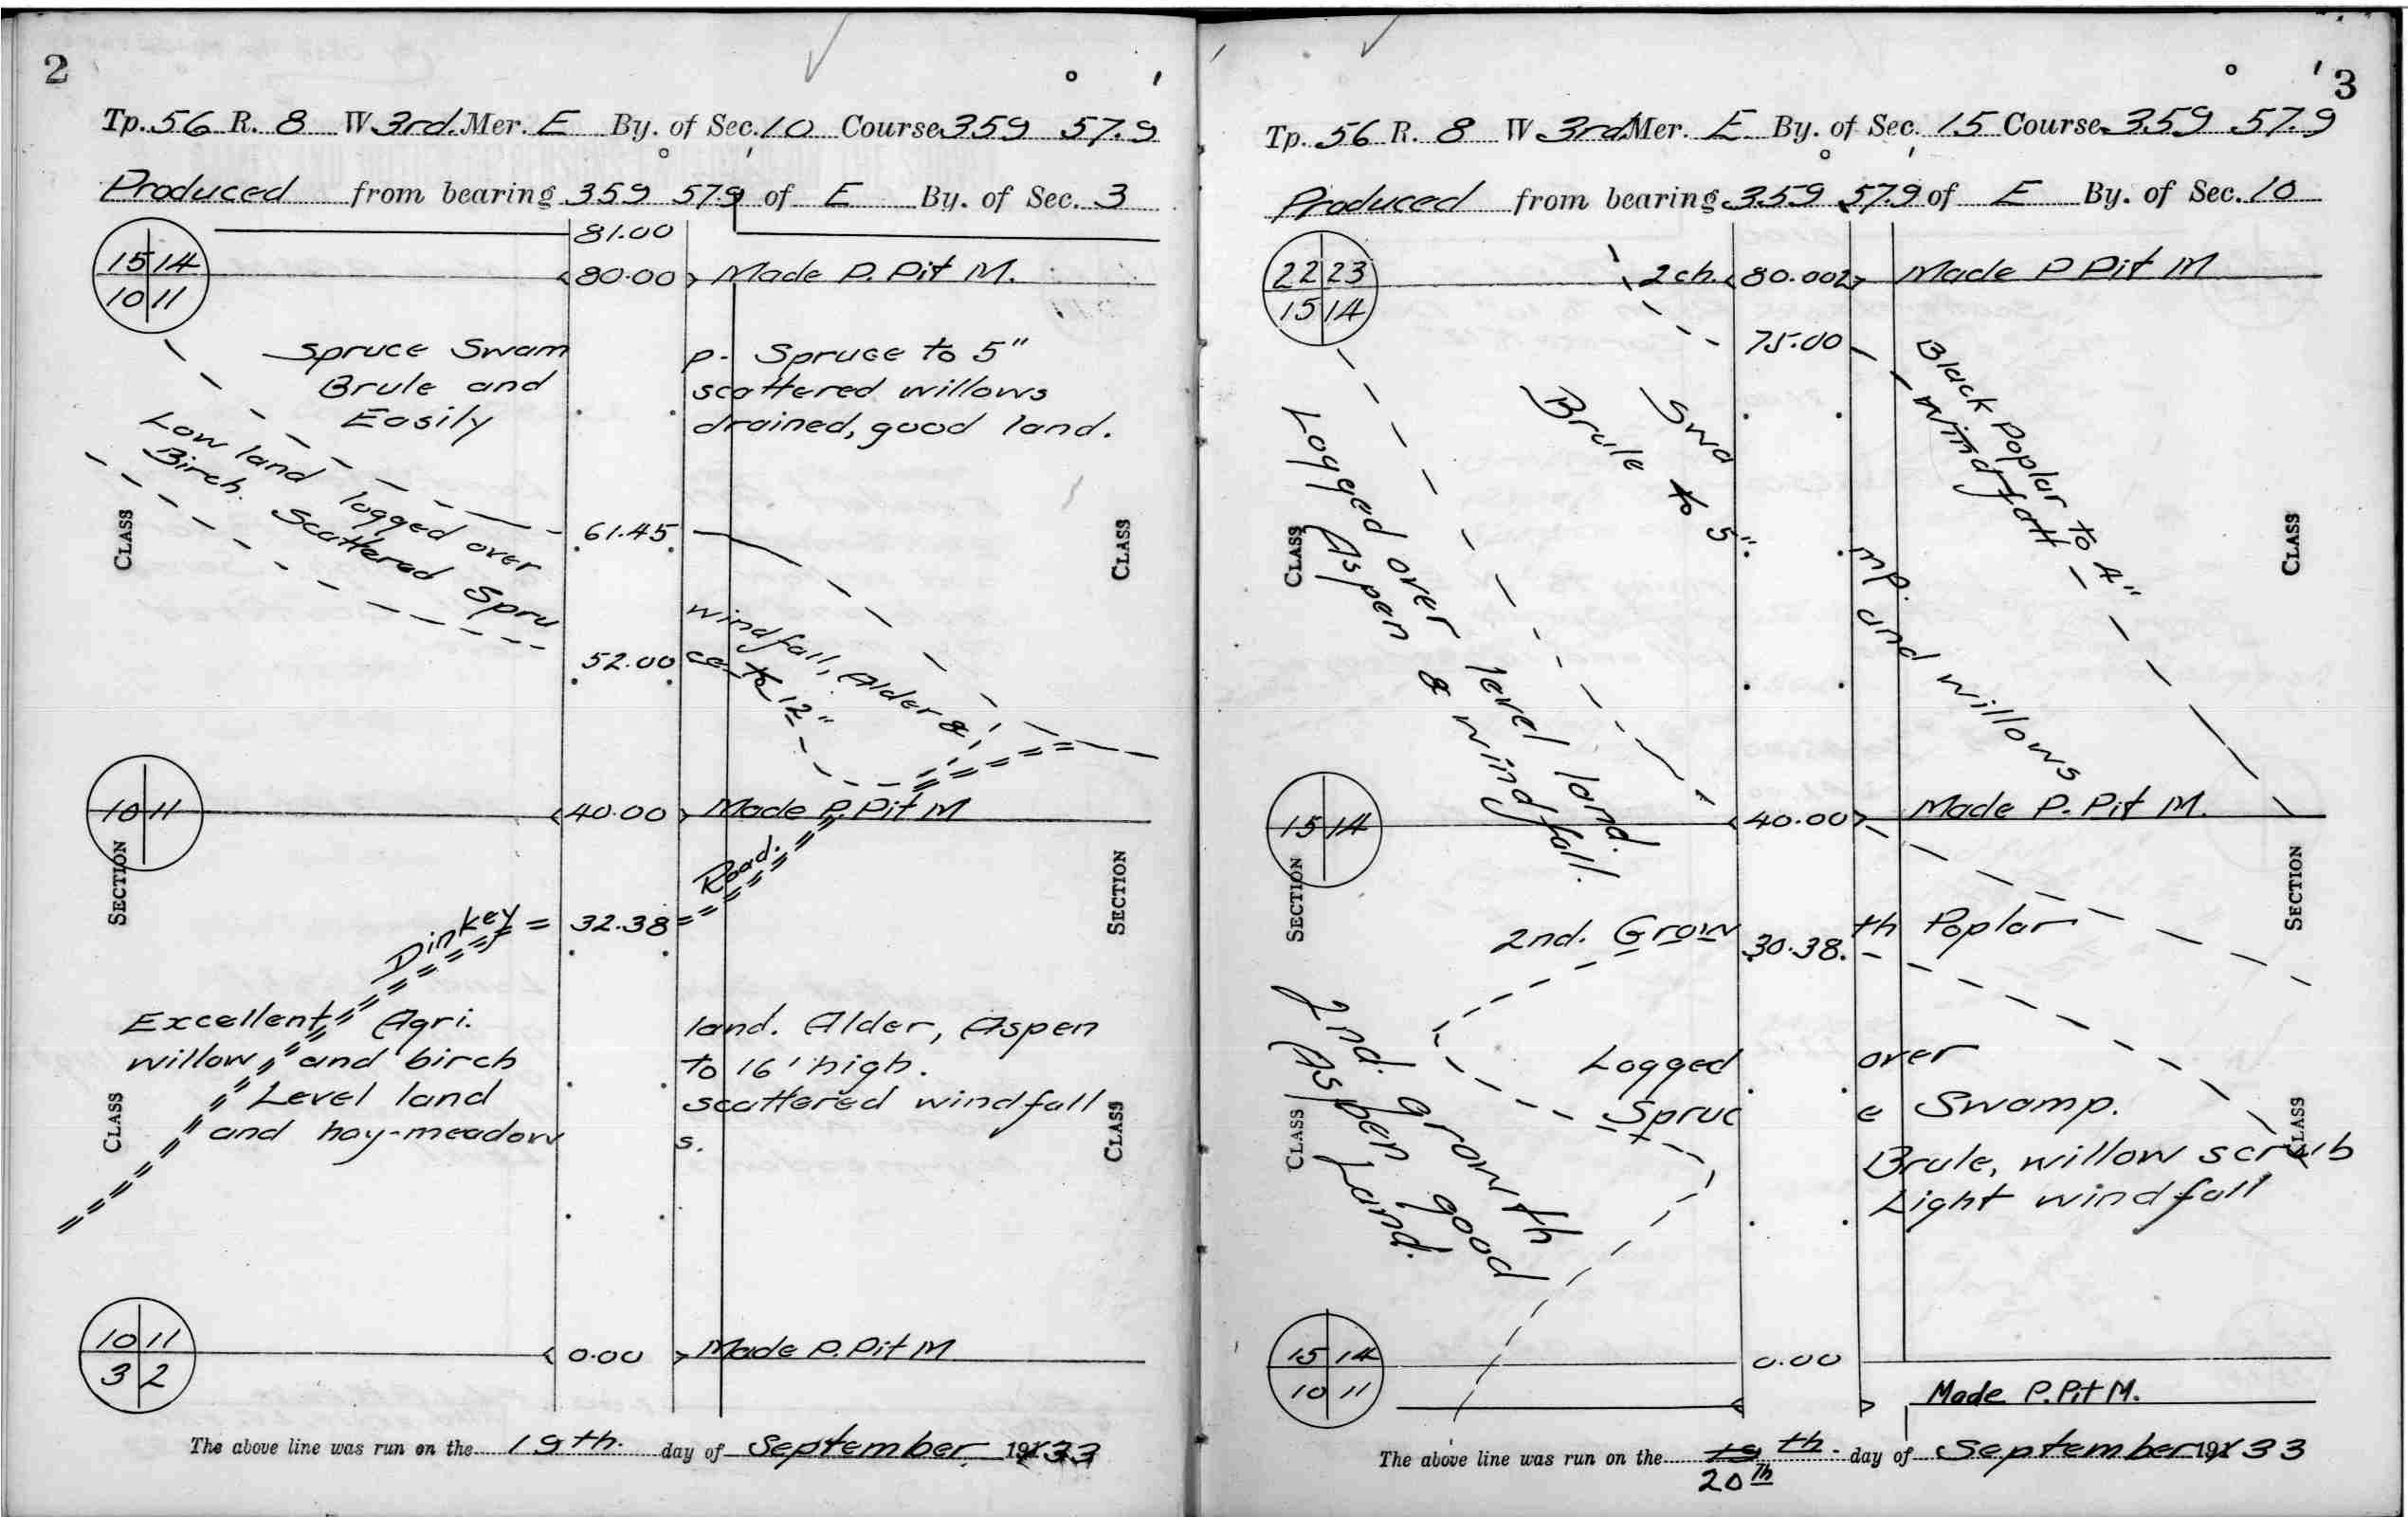 2
° '
Tp. 56 R. 8 W 3rd. Mer. E By. of Sec. 10 Course 359 57.9
° '
Produced from bearing 359 57.9 of E By. of Sec. 3
81.00
15 14
10 11
80.00 Made P. Pit M.
Spruce Swam p. Spruce to 5"
Brule and scattered willows
Easily drained, good land.
Low land logged over windfall, Alder &
Birch. Scattered Spru ce to 12"
CLASS
CLASS
61.45
52.00
10 11
40.00 Made P. Pit M
SECTION
SECTION
Dinkey 32.38 Road.
Excellent Agri. land. Alder, Aspen
willow and birch to 16' high.
Level land scattered windfall
and hay-meadow s.
CLASS
CLASS
10 11
3 2
0.00 Made P. Pit M
The above line was run on the 19th. day of September 191 33
° '
3
Tp. 56 R. 8 W 3rd Mer. E By. of Sec. 15 Course 359 57.9
° '
Produced from bearing 359 57.9 of E By. of Sec. 10
22 23
15 14
2ch. 80.00 2 Made P Pit M
75.00
Black Poplar to 4"
windfall
Swa mp.
Brule to 5". and willows
Logged over level land.
Aspen & windfall.
CLASS
CLASS
15 14
40.00 Made P. Pit M.
SECTION
SECTION
2nd. Grow th Poplar
30.38
Logged over
Spruc e Swamp.
Brule, willow scrub
Light windfall
2nd. growth
Aspen good
Land.
CLASS
CLASS
15 14
10 11
0.00
Made P. Pit M.
The above line was run on the 19 th. day of September 191 33
20th